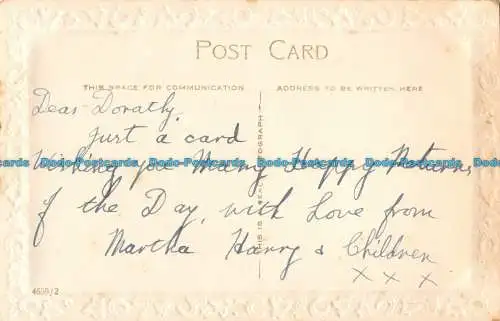 POST CARD
THIS SPACE FOR COMMUNICATION
ADDRESS TO BE WRITTEN HERE
Dear Dorathy,
Just a card
Wishing you Many Happy Returns
of the Day, with Love from
Martha Harry & Children
x x x
THIS IS A REAL PHOTOGRAPH
4698/2
Dodo-Postcards Dodo-Postcards Dodo-Postcards Dodo-Postcards Dodo-Postcards Dodo-Postcards